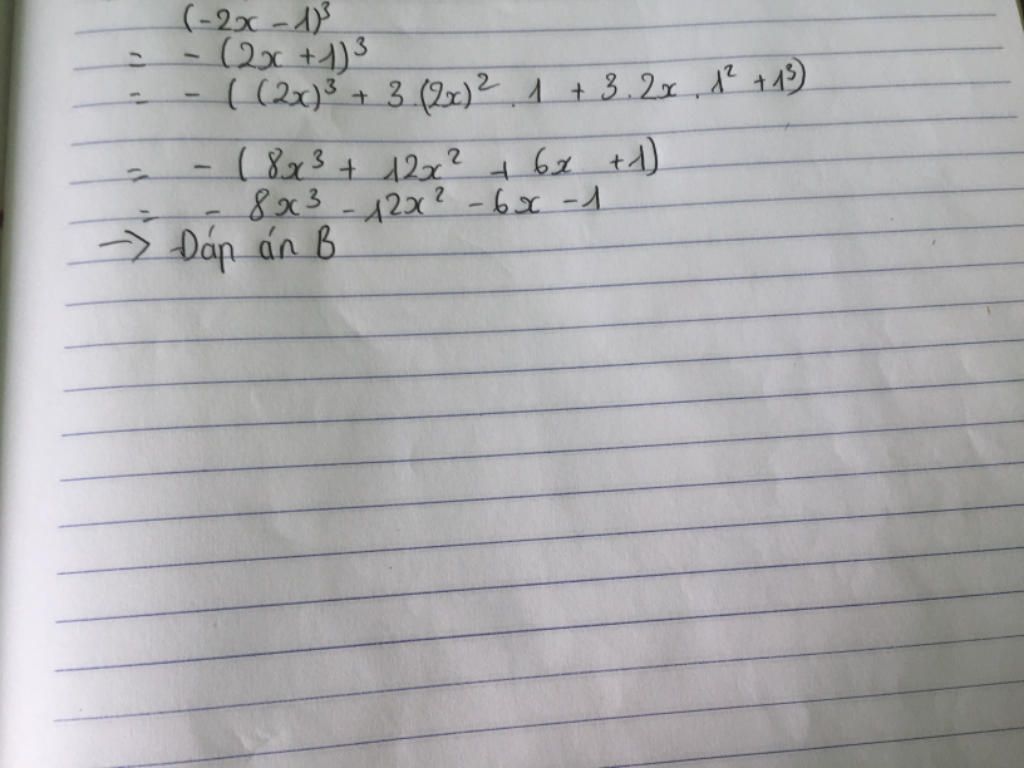 (-2x - 1)³
= - (2x + 1)³
= - ( (2x)³ + 3.(2x)² . 1 + 3.2x . 1² + 1³)
= - ( 8x³ + 12x² + 6x + 1)
= - 8x³ - 12x² - 6x - 1
→ Đáp án B